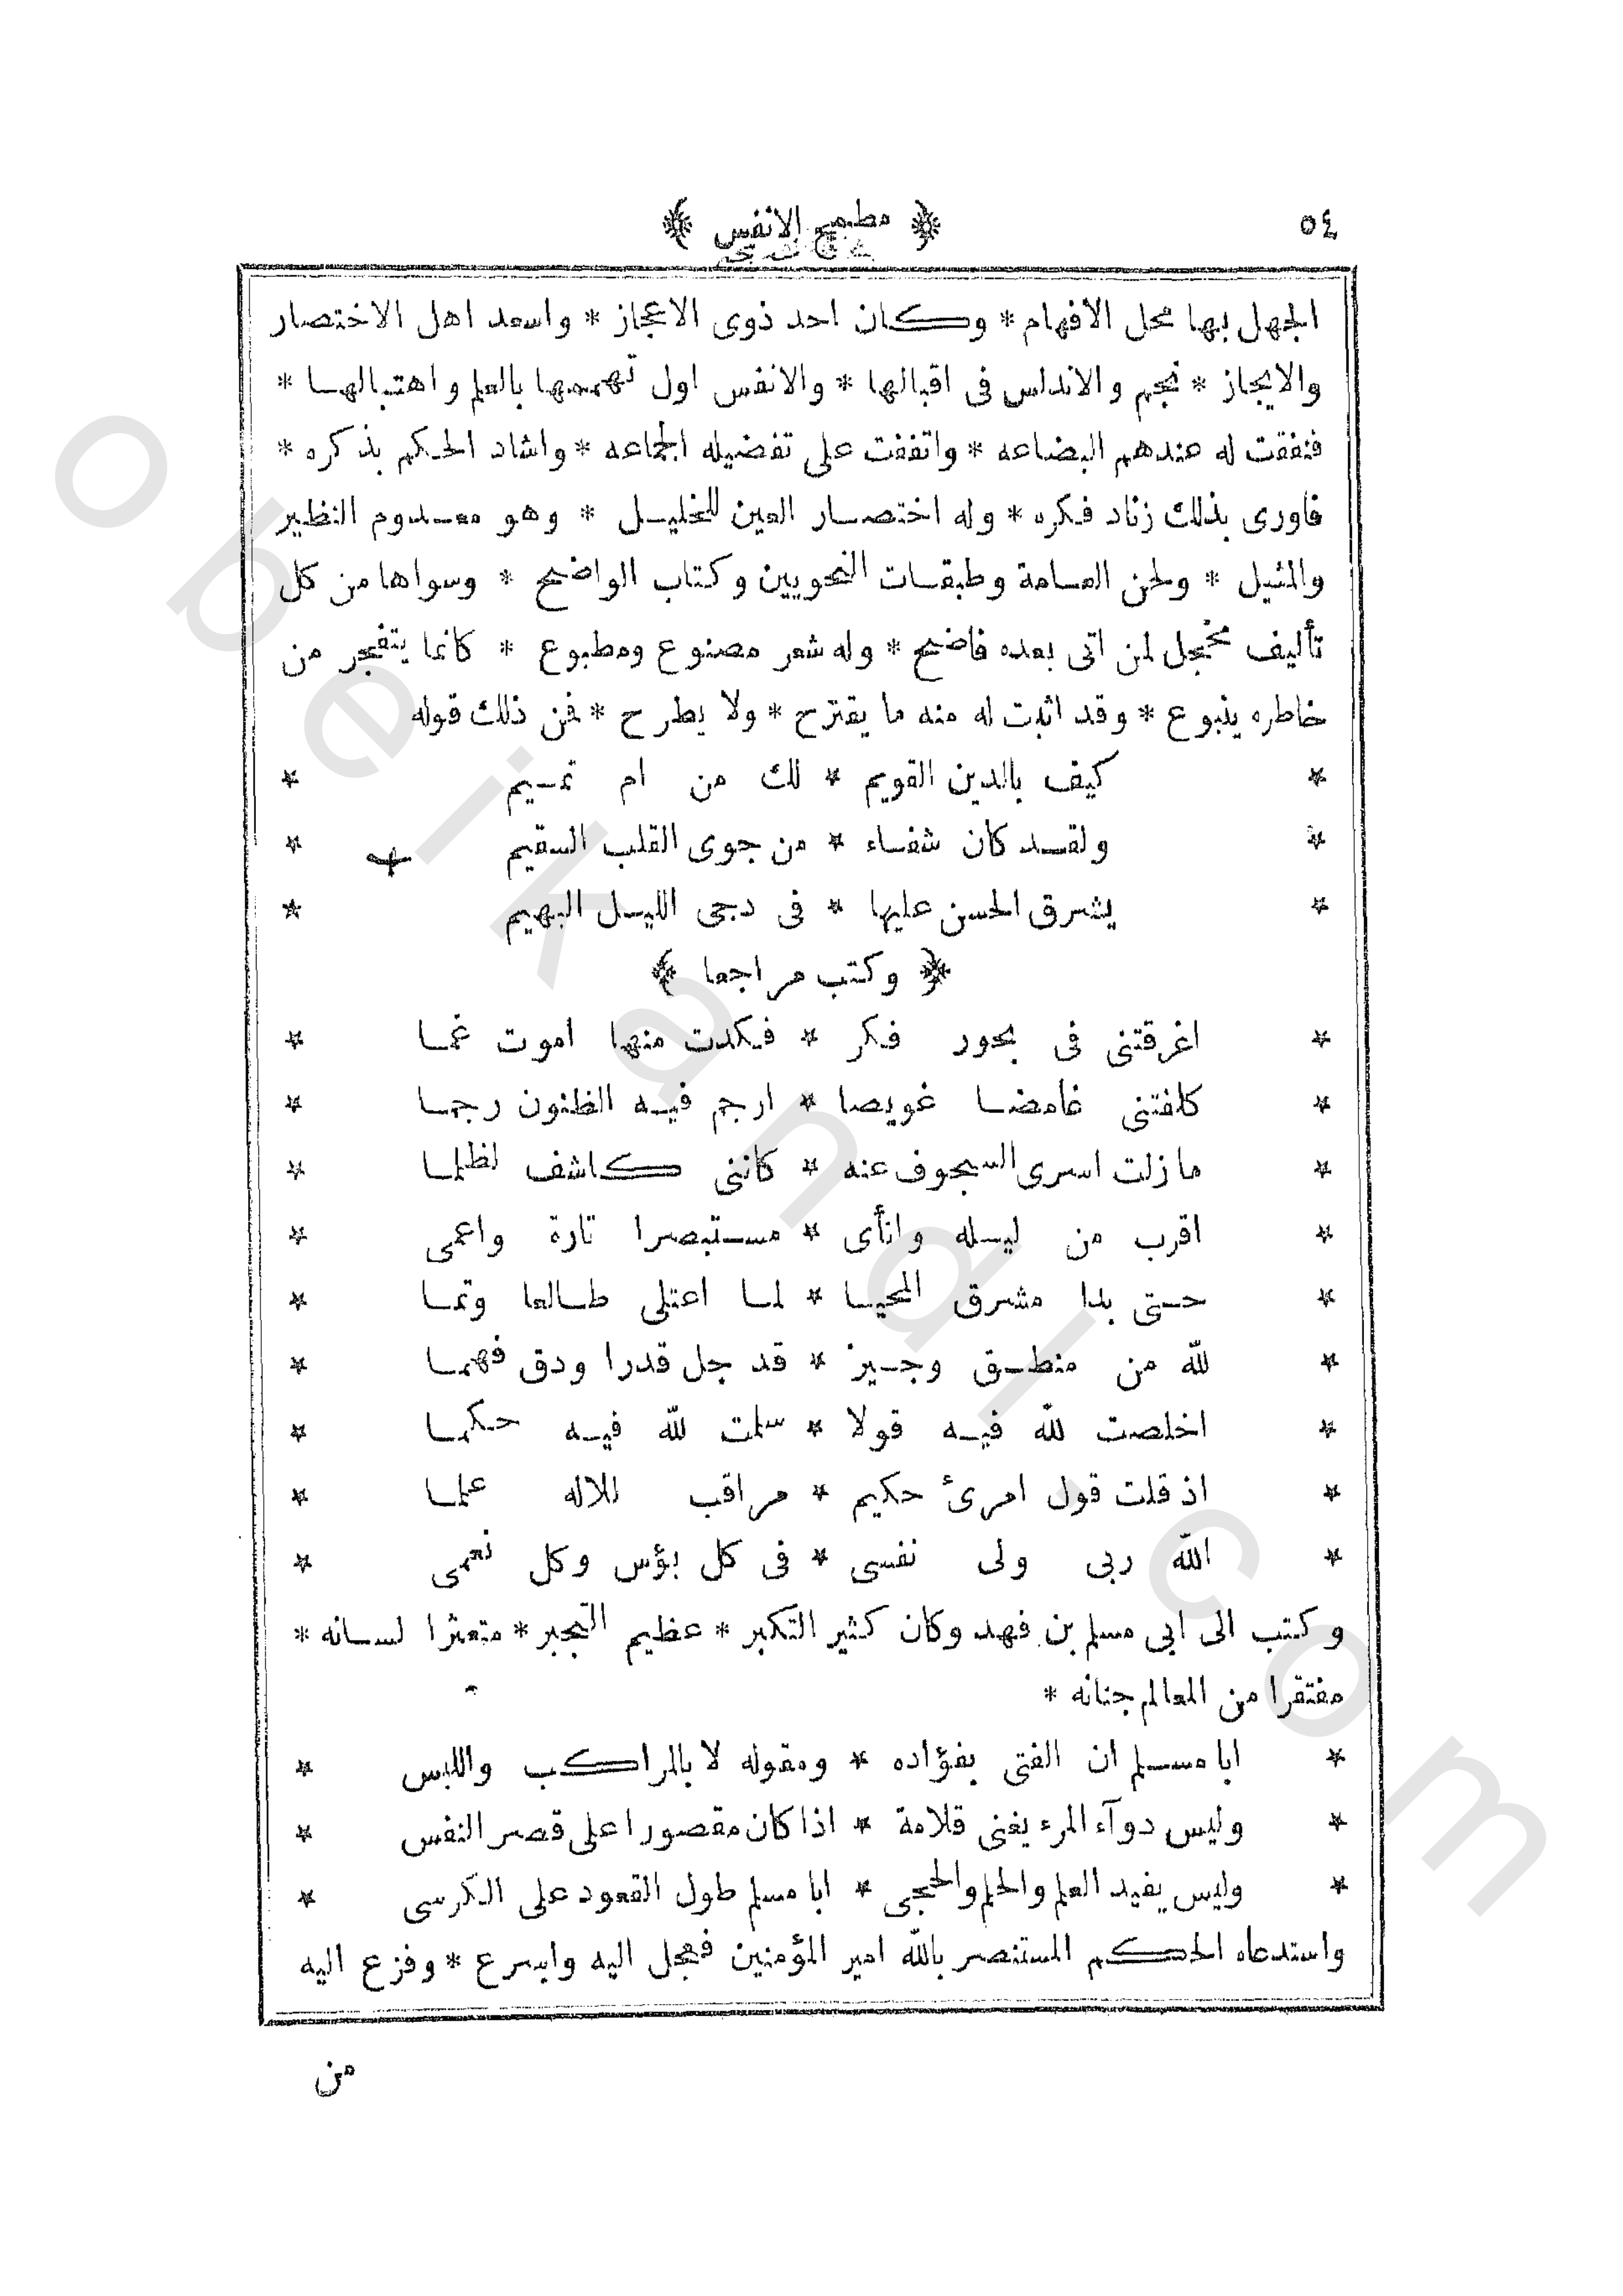 ٥٤
﴿ مطمح الانفس ﴾
الجهل بها محل الافهام * وكان احد ذوى الاعجاز * واسعد اهل الاختصار
والايجاز * نجم والاندلس فى اقبالها * والانفس اول تهممها بالعلم واهتبالها *
فنفقت له عندهم البضاعه * واتفقت على تفضيله الجماعه * واشاد الحكم بذكره *
فاورى بذلك زناد فكره * وله اختصار العين للخليل * وهو معدوم النظير
والمثيل * ولحن العامة وطبقات النحويين وكتاب الواضح * وسواها من كل
تأليف مخجل لمن اتى بعده فاضح * وله شعر مصنوع ومطبوع * كانما يتفجر من
خاطره ينبوع * وقد اثبت له منه ما يقترح * ولا يطرح * فمن ذلك قوله
* كيف بالدين القويم * لك من ام تميم *
* ولقد كان شفاء * من جوى القلب السقيم *
* يشرق الحسن عليها * فى دجى الليل البهيم *
﴿ وكتب مراجعا ﴾
* اغرقتنى فى بحور فكر * فكدت منها اموت غما *
* كلفتنى غامضا عويصا * ارجم فيه الظنون رجما *
* ما زلت اسرى السجوف عنه * كاننى كاشف لظلما *
* اقرب من ليله وانأى * مستبصرا تارة واعمى *
* حتى بدا مشرق المحيا * لما اعتلى طالعا وتما *
* لله من منطق وجيز * قد جل قدرا ودق فهما *
* اخلصت لله فيه قولا * سلمت لله فيه حكما *
* اذ قلت قول امرئ حكيم * مراقب للاله علما *
* الله ربى ولى نفسى * فى كل بؤس وكل نعمى *
وكتب الى ابى مسلم بن فهد وكان كثير التكبر * عظيم التجبر * متعثرا لسانه *
مفتقرا من المعالم جنانه *
* ابا مسلم ان الفتى بفؤاده * ومقوله لا بالمراكب واللبس *
* وليس دوآء المرء يغنى قلامة * اذا كان مقصورا على قصر النفس *
* وليس يفيد العلم والحلم والحجى * ابا مسلم طول القعود على الكرسى *
واستدعاه الحكم المستنصر بالله امير المؤمنين فعجل اليه واسرع * وفزع اليه
من
obeikandl.com